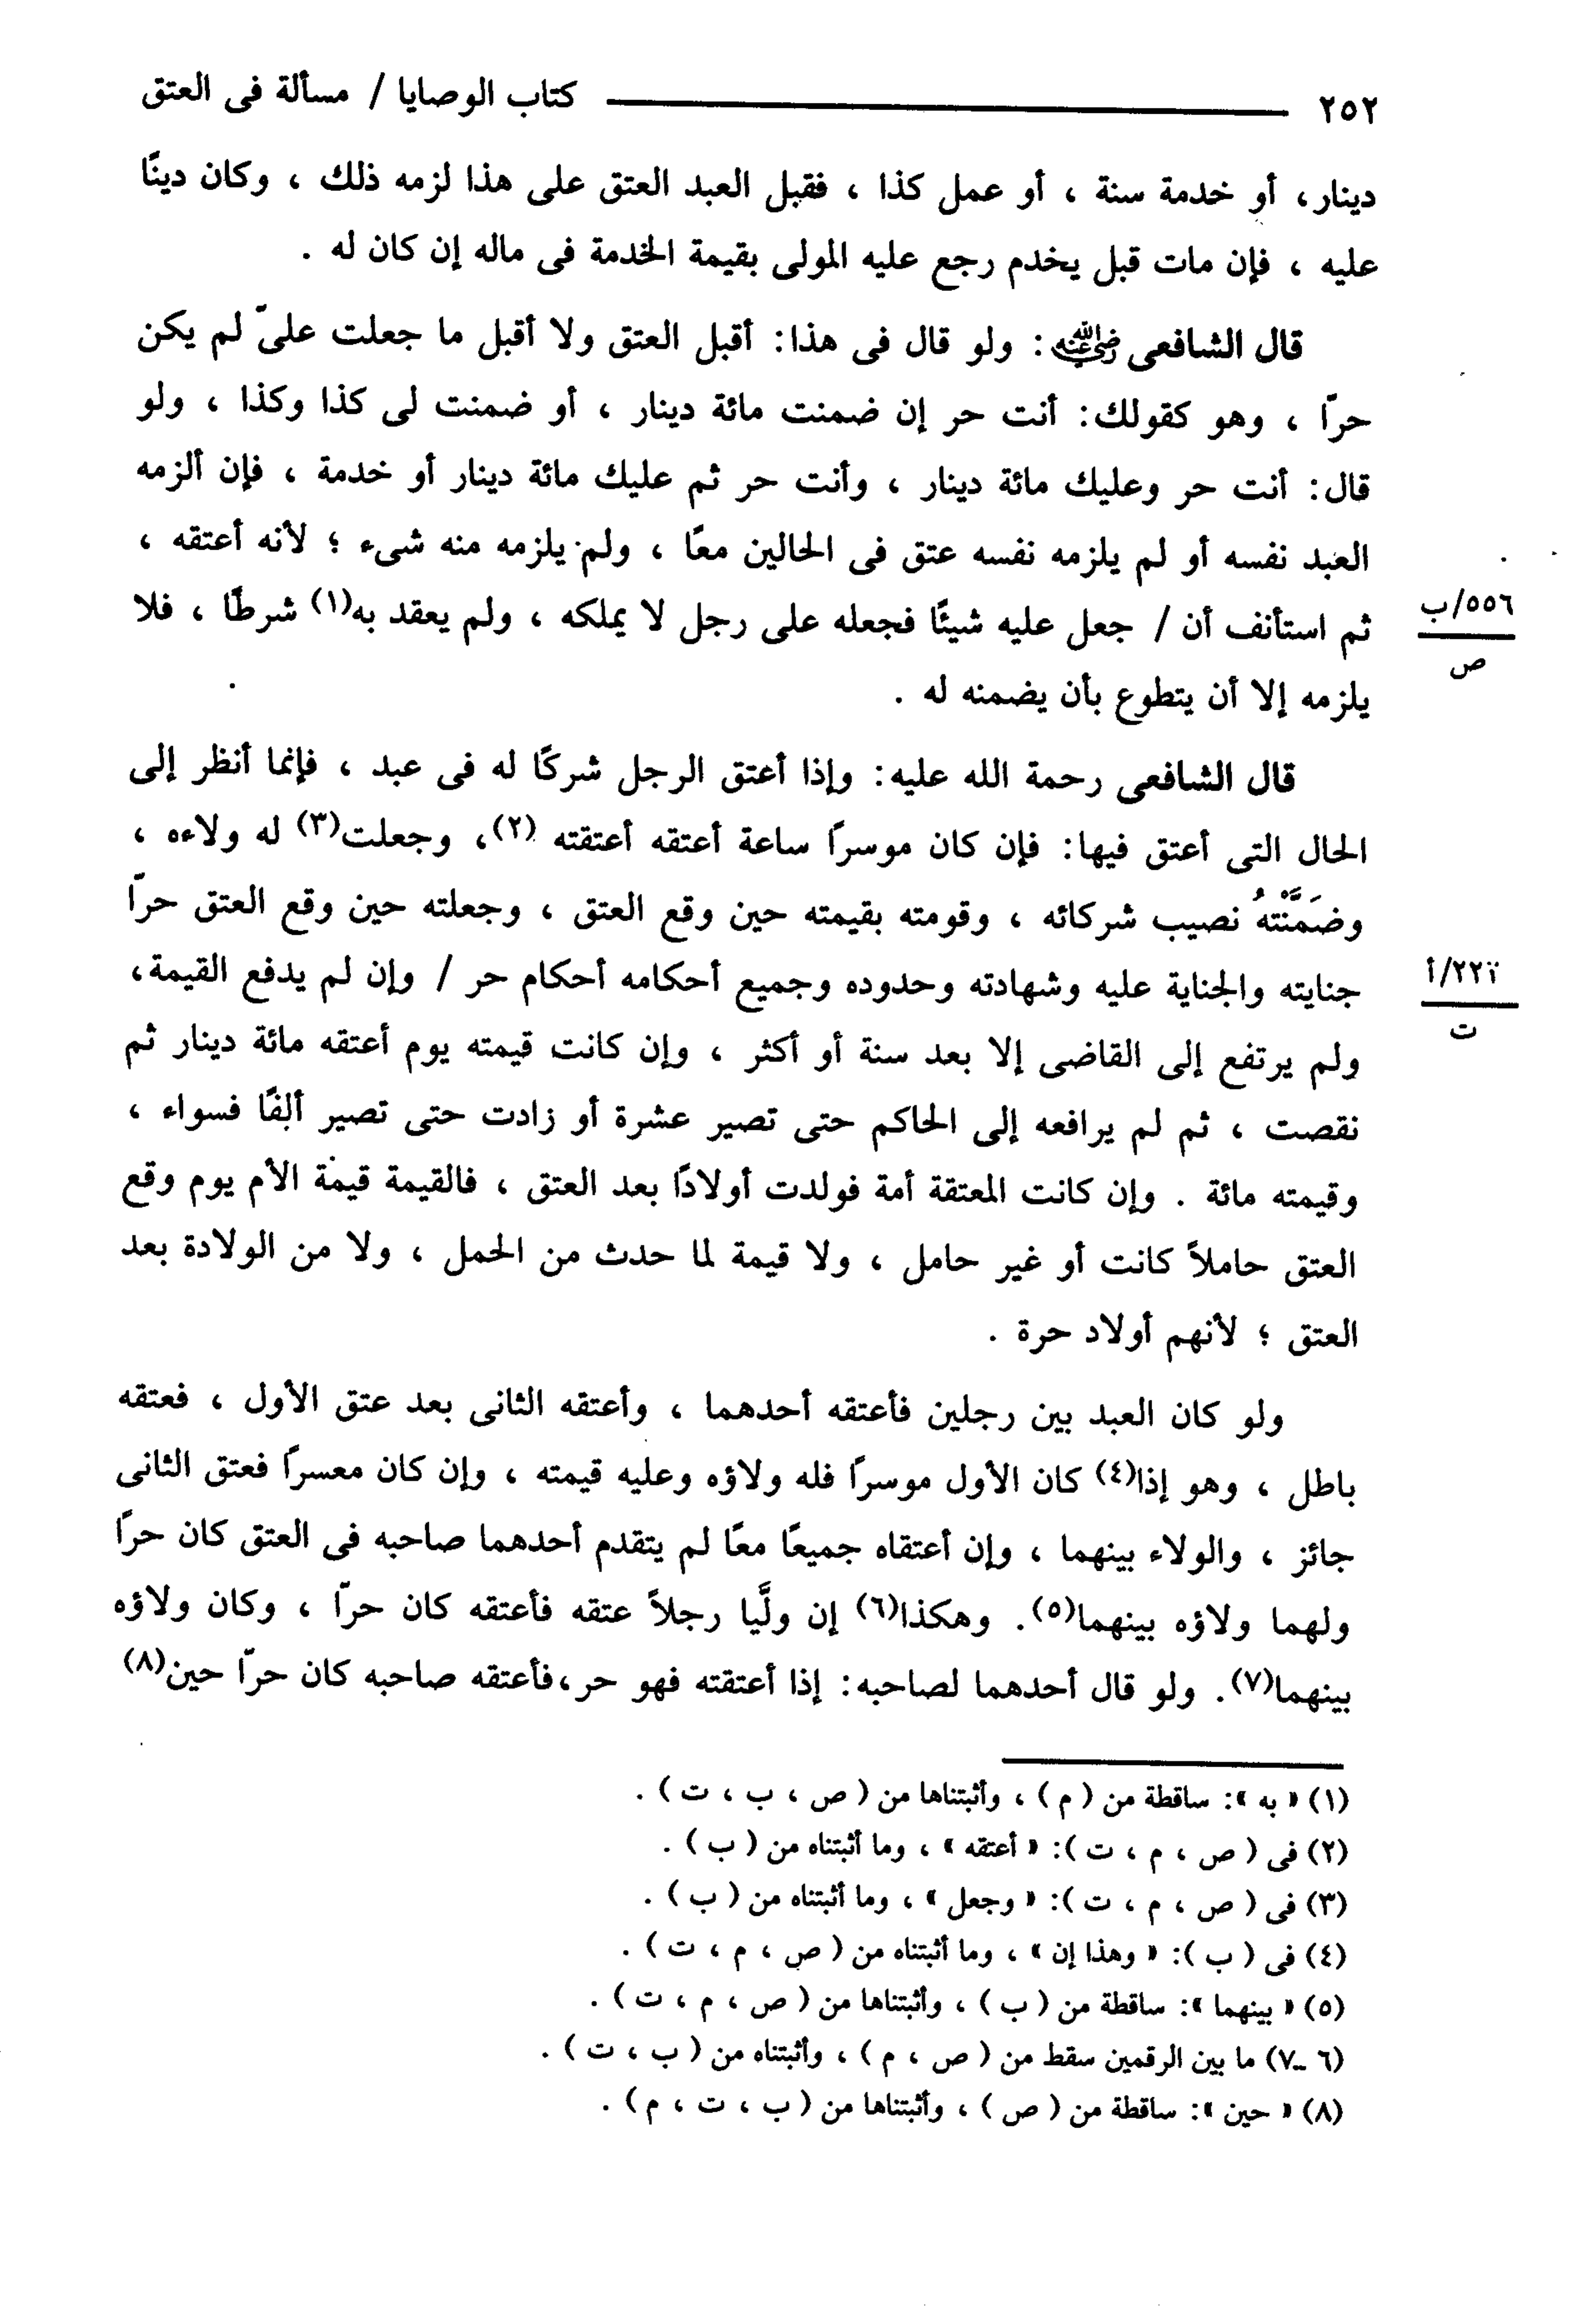 ٢٥٢ كتاب الوصايا / مسألة فى العتق
دينار، أو خدمة سنة ، أو عمل كذا ، فقبل العبد العتق على هذا لزمه ذلك ، وكان دينًا
عليه ، فإن مات قبل يخدم رجع عليه المولى بقيمة الخدمة فى ماله إن كان له .
قال الشافعى رضي الله عنه : ولو قال فى هذا: أقبل العتق ولا أقبل ما جعلت علىّ لم يكن
حرّا ، وهو كقولك: أنت حر إن ضمنت مائة دينار ، أو ضمنت لى كذا وكذا ، ولو
قال: أنت حر وعليك مائة دينار ، وأنت حر ثم عليك مائة دينار أو خدمة ، فإن ألزمه
العبد نفسه أو لم يلزمه نفسه عتق فى الحالين معًا ، ولم يلزمه منه شىء ؛ لأنه أعتقه ،
ثم استأنف أن / جعل عليه شيئًا فجعله على رجل لا يملكه ، ولم يعقد به(١) شرطًا ، فلا
٥٥٦/ب
ص
يلزمه إلا أن يتطوع بأن يضمنه له .
قال الشافعى رحمة الله عليه: وإذا أعتق الرجل شركًا له فى عبد ، فإنما أنظر إلى
الحال التى أعتق فيها: فإن كان موسرًا ساعة أعتقه أعتقته (٢)، وجعلت(٣) له ولاءه ،
وضَمَّنْتهُ نصيب شركائه ، وقومته بقيمته حين وقع العتق ، وجعلته حين وقع العتق حرّا
جنايته والجناية عليه وشهادته وحدوده وجميع أحكامه أحكام حر / وإن لم يدفع القيمة،
٢٢٠/أ
ت
ولم يرتفع إلى القاضى إلا بعد سنة أو أكثر ، وإن كانت قيمته يوم أعتقه مائة دينار ثم
نقصت ، ثم لم يرافعه إلى الحاكم حتى تصير عشرة أو زادت حتى تصير ألفًا فسواء ،
وقيمته مائة . وإن كانت المعتقة أمة فولدت أولادًا بعد العتق ، فالقيمة قيمة الأم يوم وقع
العتق حاملاً كانت أو غير حامل ، ولا قيمة لما حدث من الحمل ، ولا من الولادة بعد
العتق ؛ لأنهم أولاد حرة .
ولو كان العبد بين رجلين فأعتقه أحدهما ، وأعتقه الثانى بعد عتق الأول ، فعتقه
باطل ، وهو إذا(٤) كان الأول موسرًا فله ولاؤه وعليه قيمته ، وإن كان معسرًا فعتق الثانى
جائز ، والولاء بينهما ، وإن أعتقاه جميعًا معًا لم يتقدم أحدهما صاحبه فى العتق كان حرًا
ولهما ولاؤه بينهما(٥). وهكذا(٦) إن ولَّيا رجلاً عتقه فأعتقه كان حرّا ، وكان ولاؤه
بينهما(٧). ولو قال أحدهما لصاحبه: إذا أعتقته فهو حر،فأعتقه صاحبه كان حرّا حين(٨)
(١) « به »: ساقطة من ( م ) ، وأثبتناها من ( ص ، ب ، ت ) .
(٢) فى ( ص ، م ، ت ): « أعتقه » ، وما أثبتناه من ( ب ) .
(٣) فى ( ص ، م ، ت ): « وجعل » ، وما أثبتناه من ( ب ) .
(٤) فى ( ب ): « وهذا إن » ، وما أثبتناه من ( ص ، م ، ت ) .
(٥) « بينهما »: ساقطة من ( ب ) ، وأثبتناها من ( ص ، م ، ت ) .
(٦ -٧) ما بين الرقمين سقط من ( ص ، م ) ، وأثبتناه من ( ب ، ت ) .
(٨) « حين »: ساقطة من ( ص ) ، وأثبتناها من ( ب ، ت ، م ) .